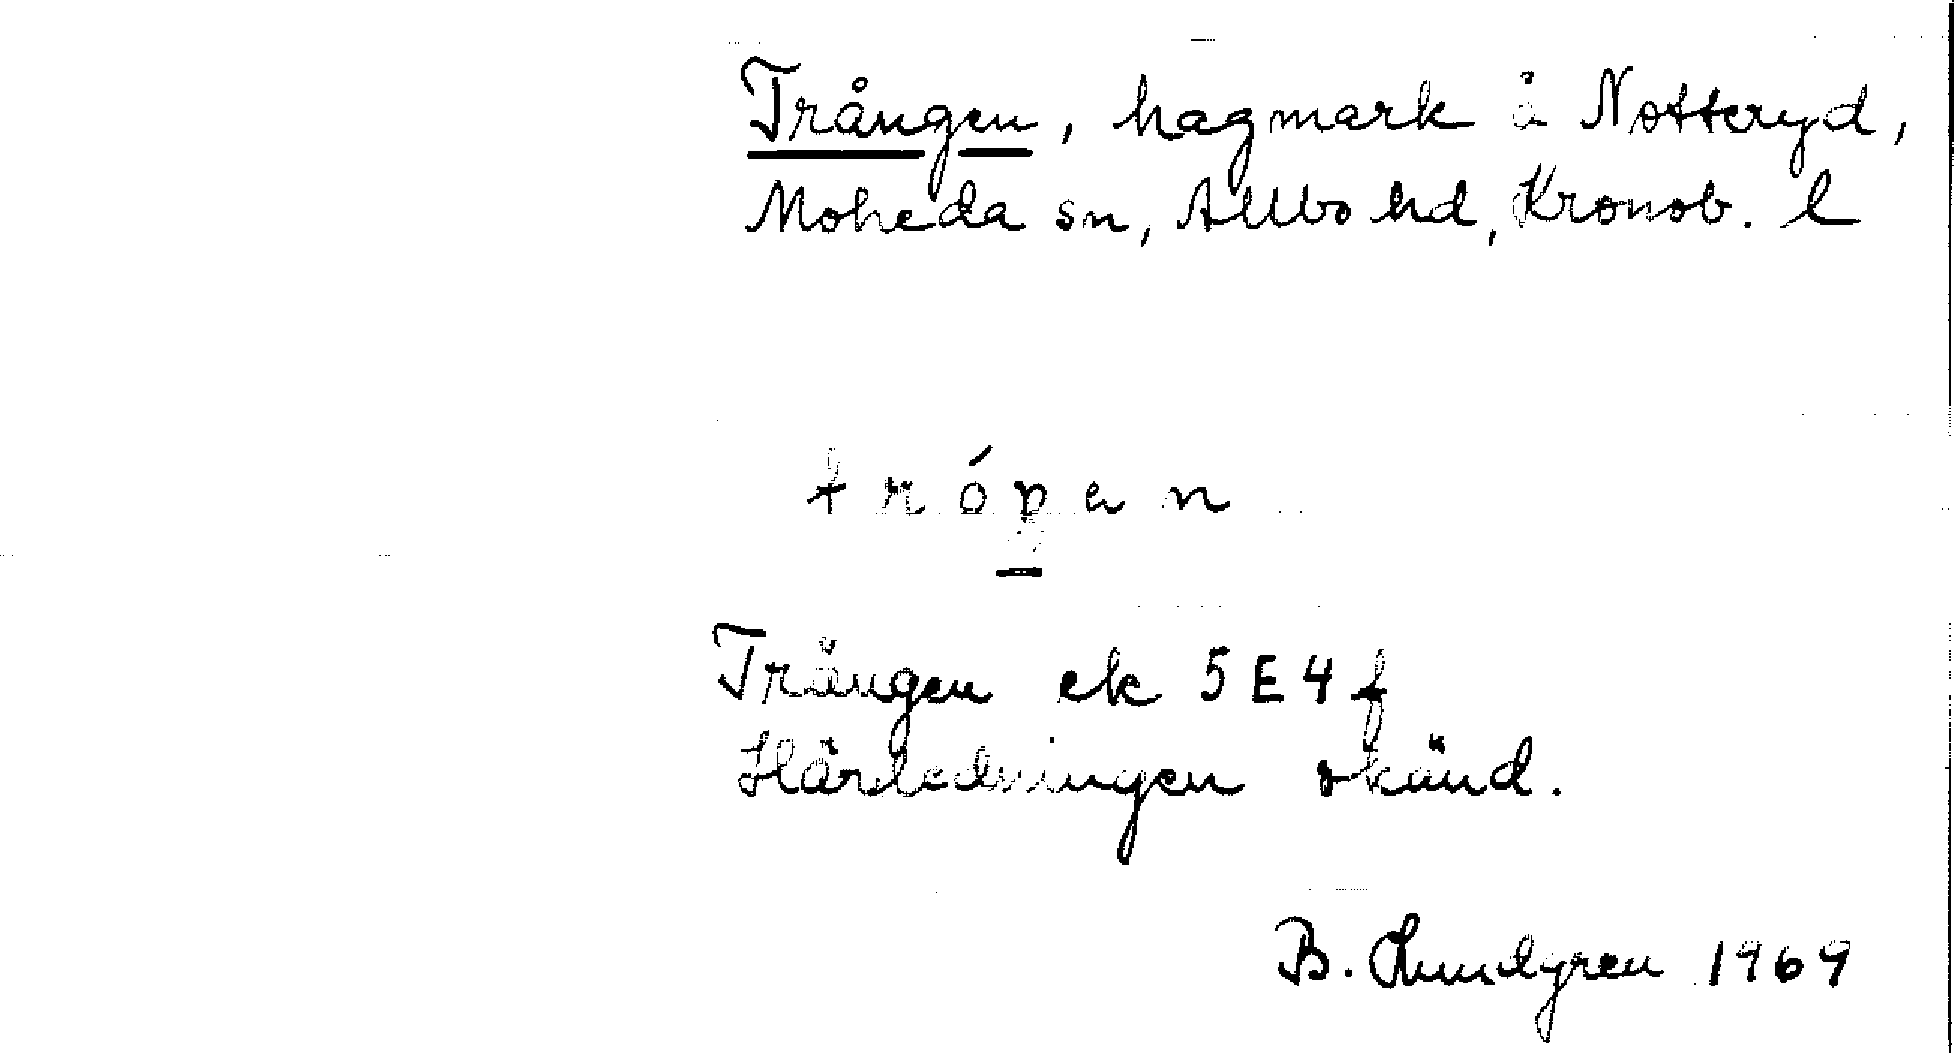 Trången, hagmark å Notteryd,
Moheda sn, Allbo hd, Kronob. l
Trången ek 5E4f
Härledningen okänd.
B. Lundgren 1969